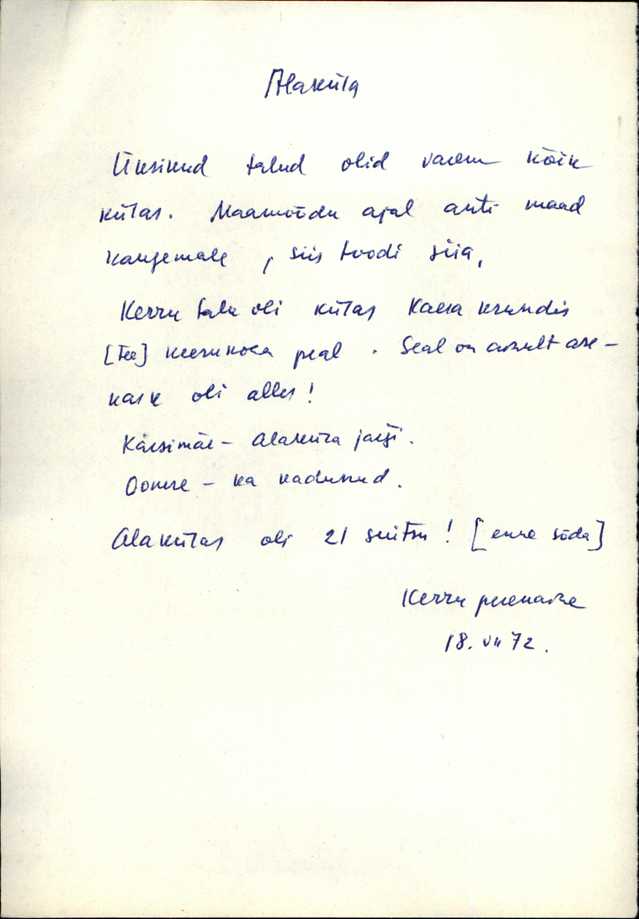 Alaküla
Üksikud talud olid varem kõik
külas. Maamõõdu ajal anti maad
kaugemale, siis toodi siia,
Kerru talu oli külas Kaera krundis
[Tee] keerukoha peal. Seal on arvult ase-
kask oli alles!
Käesimäe - Alaküla järgi.
Oomere - ka kadunud.
Alakülas oli 21 suitsu! [enne sõda]
Kerru perenaine
18. VII 72.